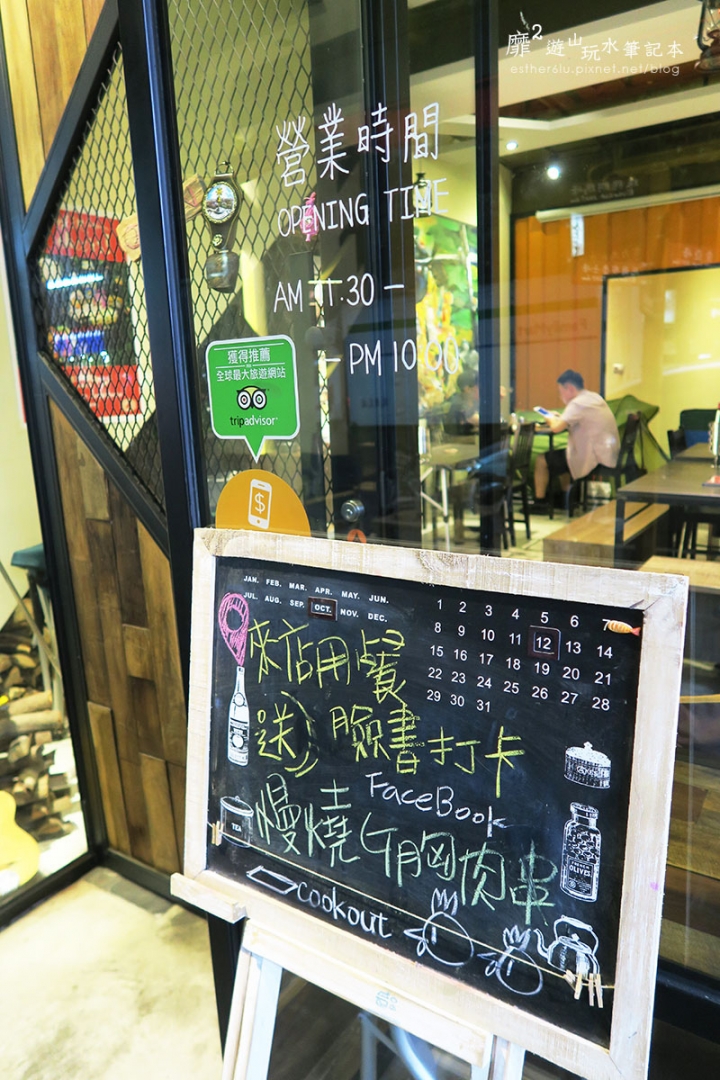 靡²遊山玩水筆記本
esther6lu.pixnet.net/blog
營業時間
OPENING TIME
AM 11:30 —
— PM 10:00
獲得推薦
全球最大旅遊網站
tripadvisor
$
JAN. FEB. MAR. APR. MAY. JUN.
JUL. AUG. SEP. OCT. NOV. DEC.
1 2 3 4 5 6 7
8 9 10 11 12 13 14
15 16 17 18 19 20 21
22 23 24 25 26 27 28
29 30 31
來店用餐
送 臉書打卡
FaceBook
慢燒ㄍ胸肉串
TEA
OLIVES
cookout